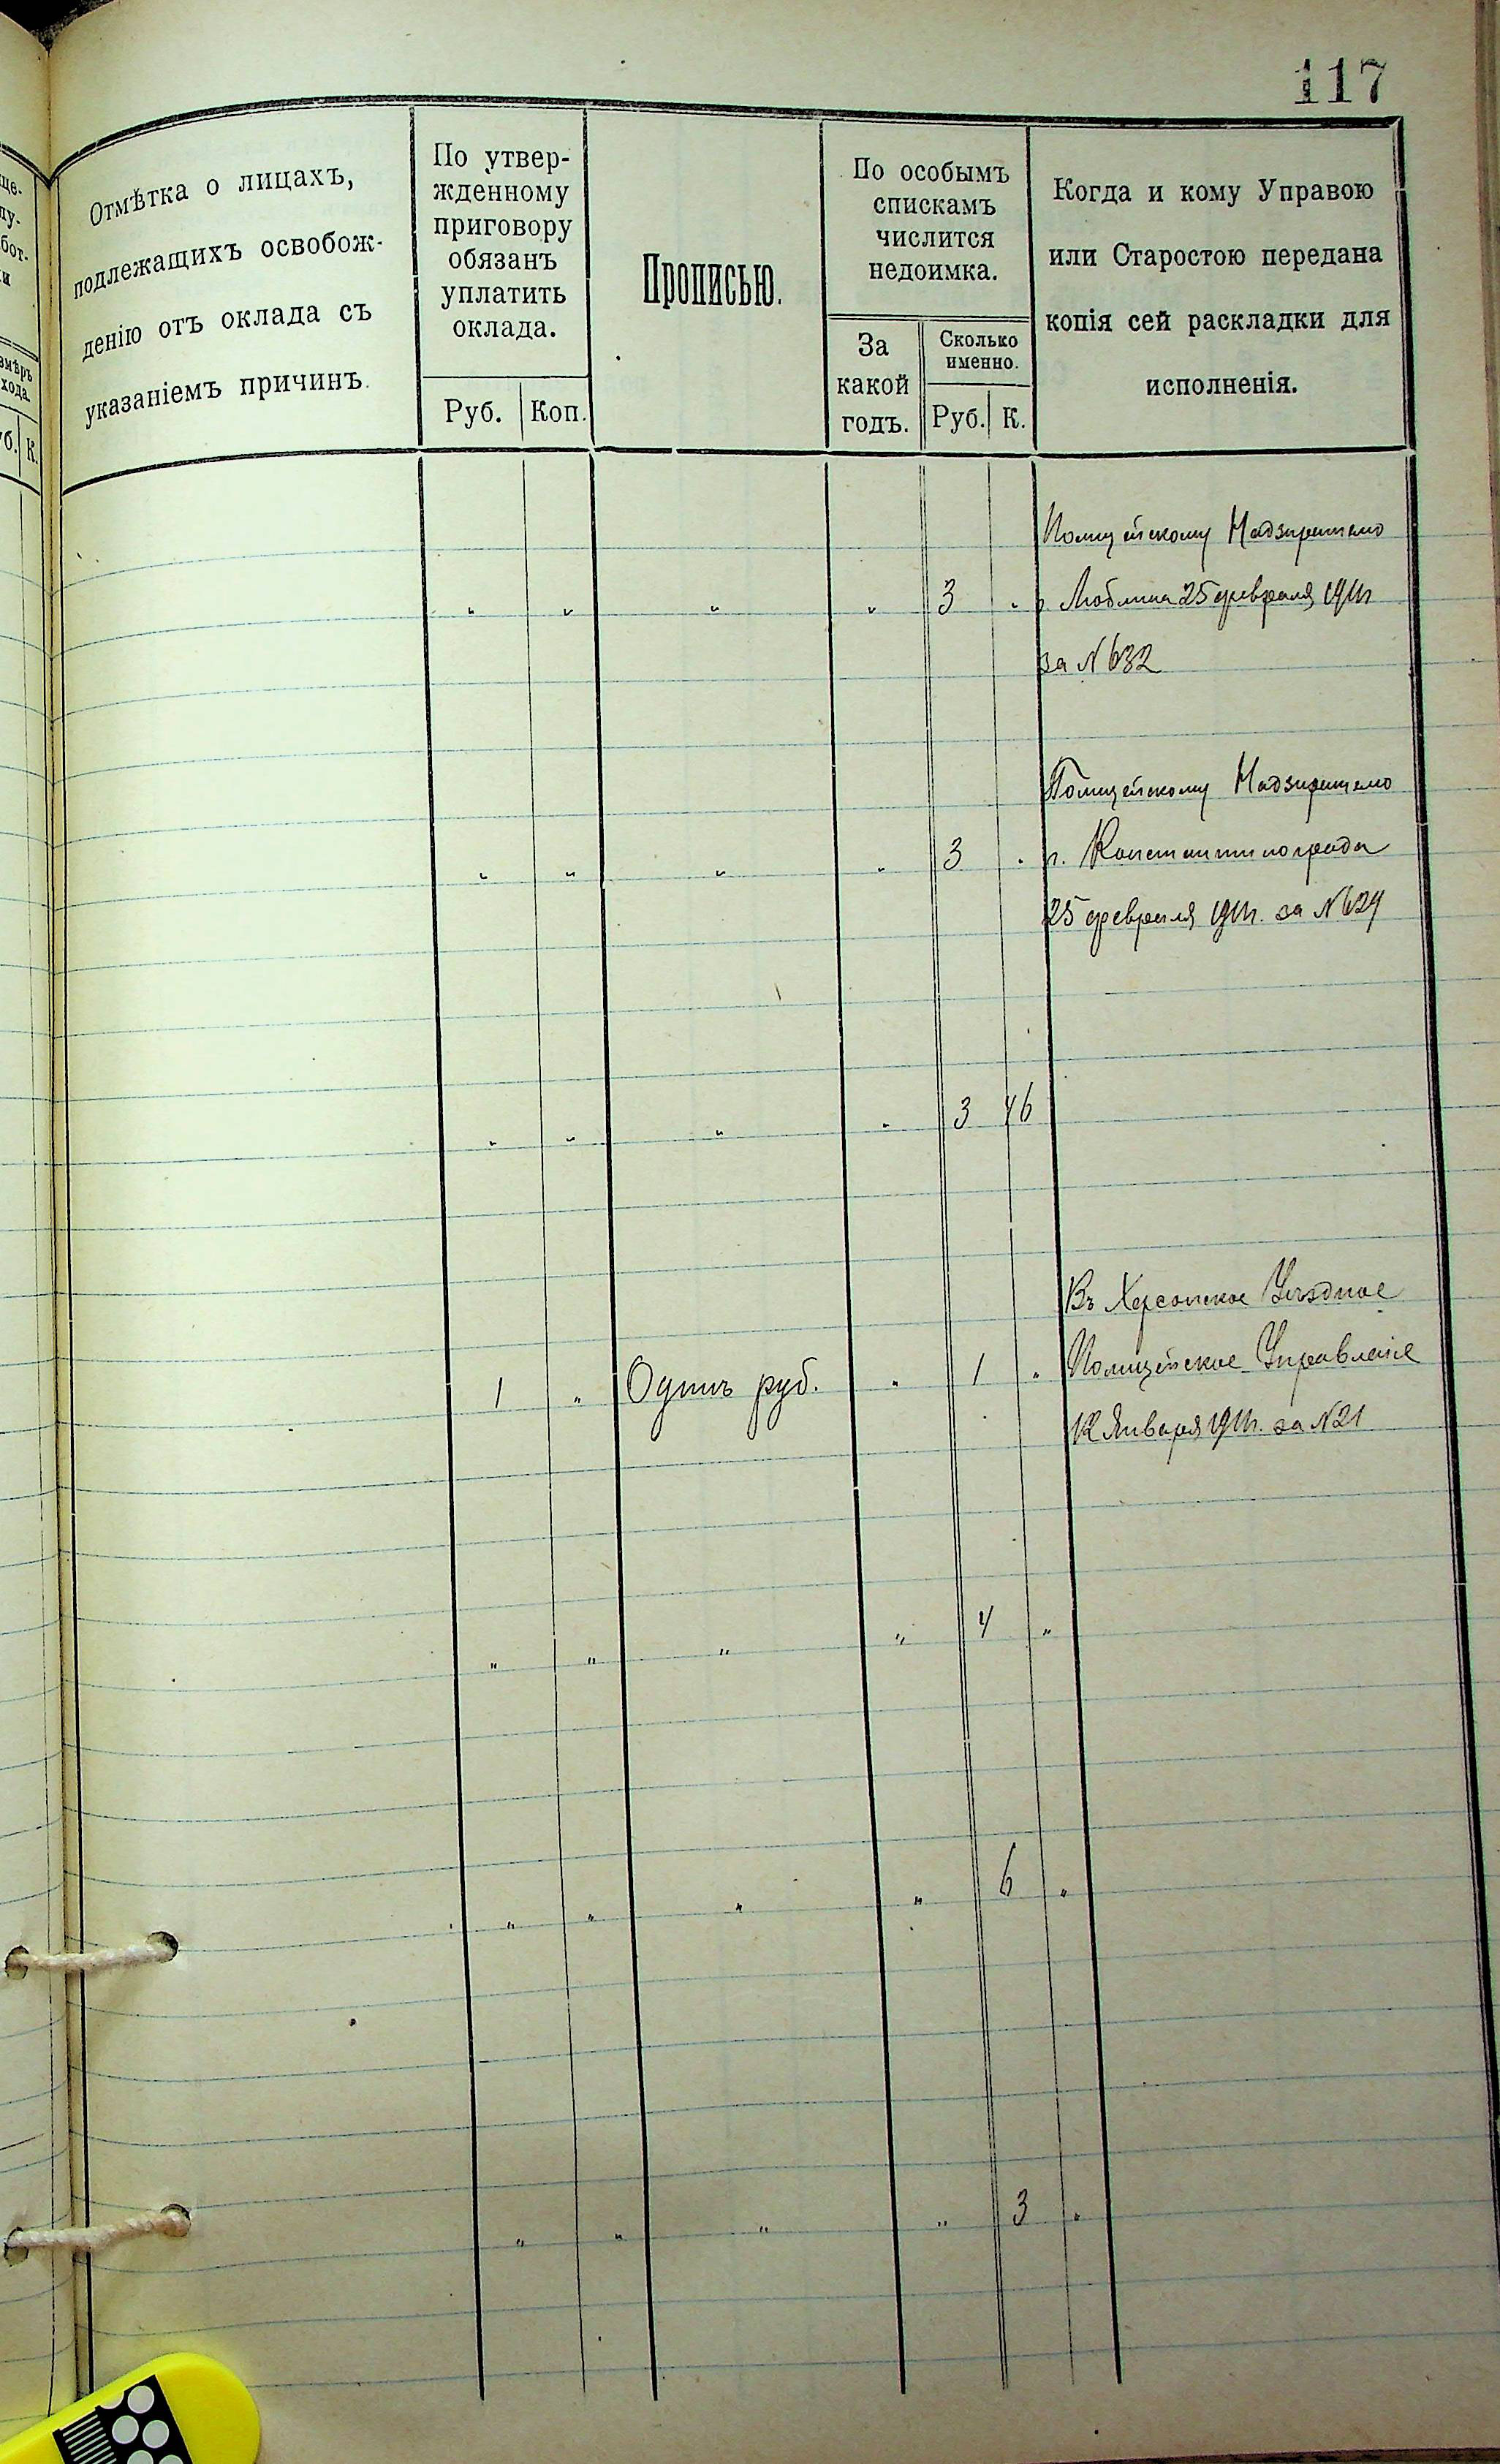 117
Отмѣтка о лицахъ,
подлежащихъ освобож-
денію отъ оклада съ
указаніемъ причинъ.
По утвер-
жденному
приговору
обязанъ
уплатить
оклада.
Руб. Коп.
Прописью.
По особымъ
спискамъ
числится
недоимка.
За
какой
годъ.
Сколько
именно.
Руб. К.
Когда и кому Управою
или Старостою передана
копія сей раскладки для
исполненія.
Полицейскому Надзирателю
„ „ „ „ 3 „ г. Люблина 25 февраля 1911 г.
за № 632
Полицейскому Надзирателю
„ „ „ „ 3 „ г. Константинограда
25 февраля 1911 г. за № 629
„ „ „ „ 3 46
Въ Херсонское Уѣздное
1 „ Одинъ руб. „ 1 „ Полицейское Управленіе
12 Января 1911 г. за № 21
„ „ „ „ 4 „
„ „ „ „ 6 „
„ „ „ „ 3 „